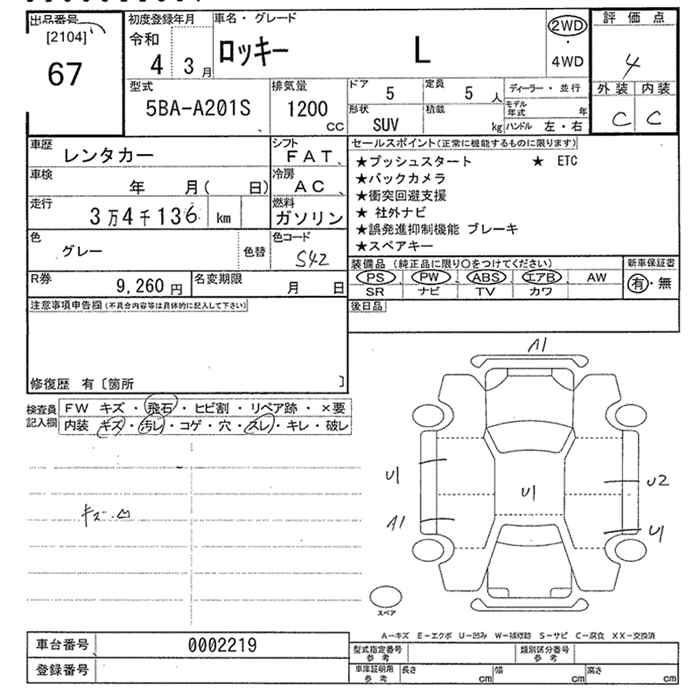 出品番号 初度登録年月 車名・グレード 評価点
[2104] 令和 2WD
67 4 3月 ロッキー L ・ 4
4WD
型式 排気量 ドア 5 定員 5人 ディーラー・並行 外装 内装
5BA-A201S 1200 CC 形状 SUV 積載 kg モデル年式 年 C C
ハンドル 左・右
車歴 レンタカー シフト FAT
車検 年 月( 日) 冷房 AC
走行 3万4千136 km 燃料 ガソリン
色 グレー 色替 色コード S42
R券 9,260円 名変期限 月 日
セールスポイント(正常に機能するものに限ります)
★プッシュスタート ★ ETC
★バックカメラ
★衝突回避支援
★ 社外ナビ
★誤発進抑制機能 ブレーキ
★スペアキー
装備品 (純正品に限り○をつけてください) 新車保証書
PS PW ABS エアB AW 有・無
SR ナビ TV カワ
後日品
注意事項申告欄(不具合内容等は具体的に記入して下さい)
修復歴 有〔箇所 〕
検査員記入欄 FW キズ・飛石・ヒビ割・リペア跡・×要
内装 キズ・汚レ・コゲ・穴・スレ・キレ・破レ
キズ・凹
A1
U1 U2
U1
A1 U1
スペア
A-キズ E-エクボ U-凹み W-補修跡 S-サビ C-腐食 XX-交換済
車台番号 0002219 型式指定番号 参考 類別区分番号 参考
登録番号 車庫証明用 参考 長さ cm 幅 cm 高さ cm